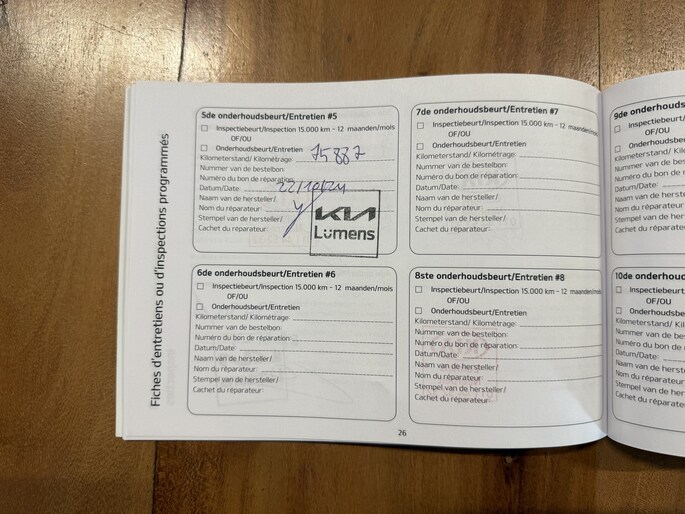 Fiches d'entretiens ou d'inspections programmés
5de onderhoudsbeurt/Entretien #5
Inspectiebeurt/Inspection 15.000 km - 12 maanden/mois
OF/OU
Onderhoudsbeurt/Entretien
Kilometerstand/ Kilométrage: 75887
Nummer van de bestelbon:
Numéro du bon de réparation:
Datum/Date: 22/10/24
Naam van de hersteller/
Nom du réparateur:
Stempel van de hersteller/
Cachet du réparateur:
KIA
Lumens
6de onderhoudsbeurt/Entretien #6
Inspectiebeurt/Inspection 15.000 km - 12 maanden/mois
OF/OU
Onderhoudsbeurt/Entretien
Kilometerstand/ Kilométrage:
Nummer van de bestelbon:
Numéro du bon de réparation:
Datum/Date:
Naam van de hersteller/
Nom du réparateur:
Stempel van de hersteller/
Cachet du réparateur:
7de onderhoudsbeurt/Entretien #7
Inspectiebeurt/Inspection 15.000 km - 12 maanden/mois
OF/OU
Onderhoudsbeurt/Entretien
Kilometerstand/ Kilométrage:
Nummer van de bestelbon:
Numéro du bon de réparation:
Datum/Date:
Naam van de hersteller/
Nom du réparateur:
Stempel van de hersteller/
Cachet du réparateur:
8ste onderhoudsbeurt/Entretien #8
Inspectiebeurt/Inspection 15.000 km - 12 maanden/mois
OF/OU
Onderhoudsbeurt/Entretien
Kilometerstand/ Kilométrage:
Nummer van de bestelbon:
Numéro du bon de réparation:
Datum/Date:
Naam van de hersteller/
Nom du réparateur:
Stempel van de hersteller/
Cachet du réparateur:
26
9de onderhouds
Inspectiebeurt/
OF/OU
Onderhoudsbe
Kilometerstand/ Kil
Nummer van de be
Numéro du bon de
Datum/Date:
Naam van de herste
Nom du réparateur
Stempel van de he
Cachet du réparat
10de onderhoud
Inspectiebeurt/
OF/OU
Onderhoudsbe
Kilometerstand/ K
Nummer van de be
Numéro du bon de
Datum/Date:
Naam van de herst
Nom du réparateur
Stempel van de he
Cachet du réparat